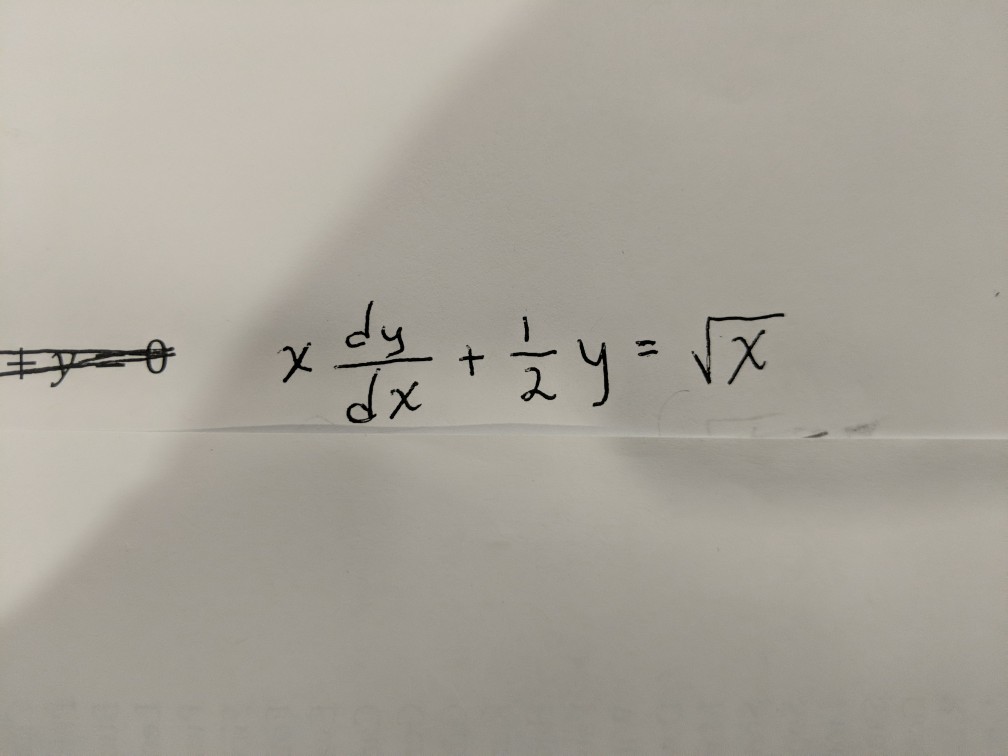 + y = 0
x dy/dx + 1/2 y = √x